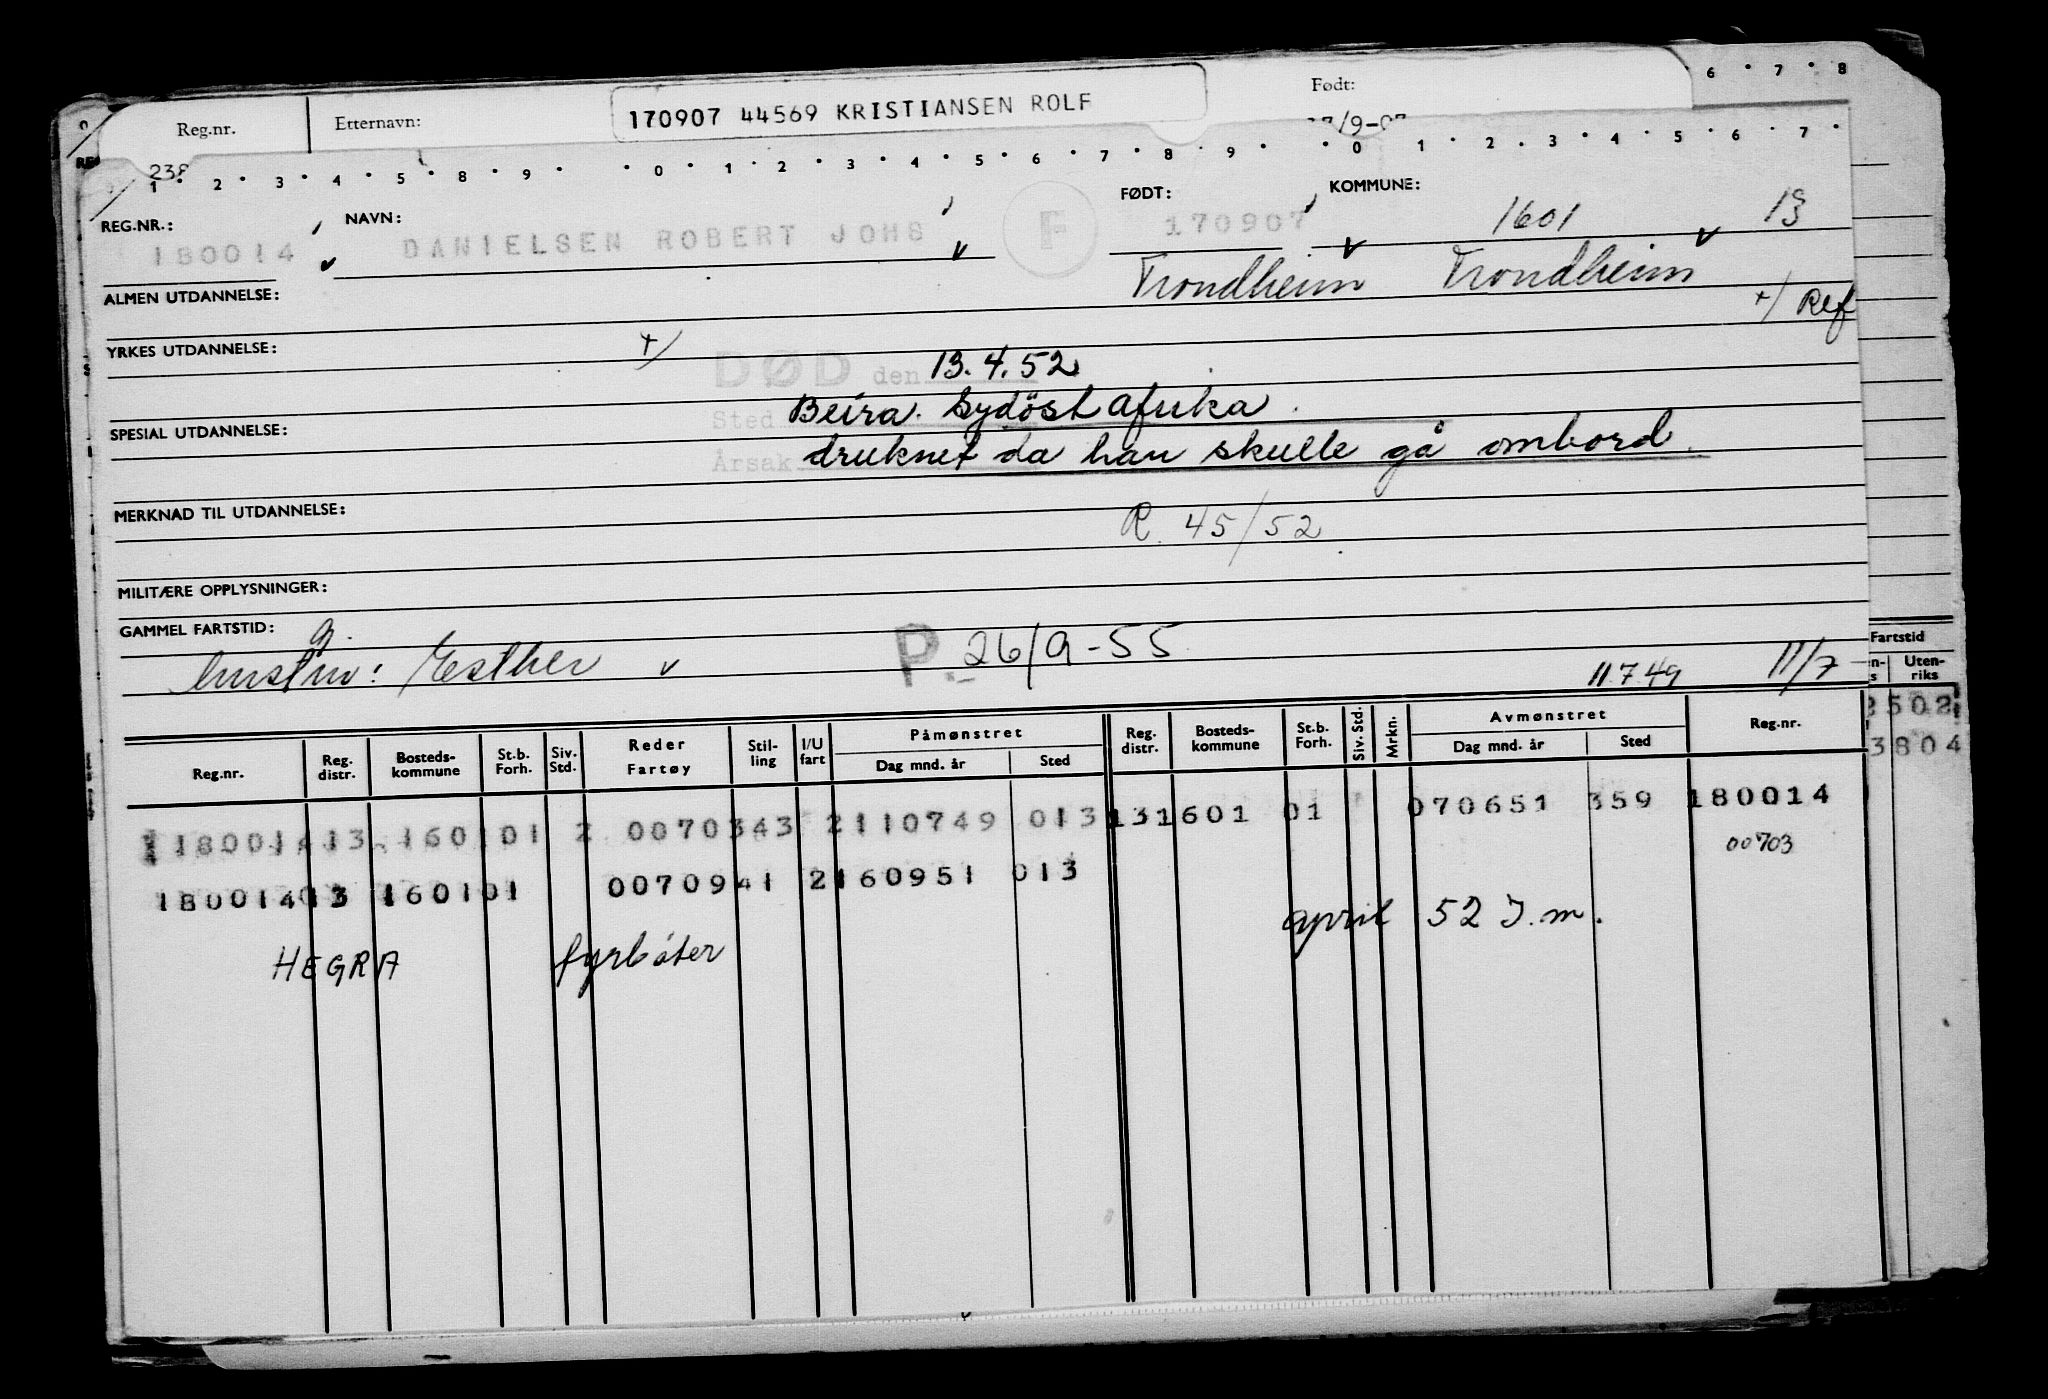 Reg.nr. Etternavn: 170907 44569 KRISTIANSEN ROLF Født:
6 7 8
238
1 2 3 4 5 8 9 0 1 2 3 4 5 6 7 8 9 0 1 2 3 4 5 6 7
REG.NR.: NAVN: FØDT: KOMMUNE:
180014 DANIELSEN ROBERT JOHS F 170907 1601 13
Trondheim Trondheim
ALMEN UTDANNELSE:
+/ Ref
YRKES UTDANNELSE: +/
DØD den 13.4.52
Sted Beira. Sydöstafrika.
SPESIAL UTDANNELSE:
Årsak druknet da han skulle gå ombord.
MERKNAD TIL UTDANNELSE:
R. 45/52
MILITÆRE OPPLYSNINGER:
GAMMEL FARTSTID:
g.
hustru: Esther v P. 26/9-55 11.7.49 11/7
Fartstid
Uten-
riks
Påmønstret Avmønstret
Reg.nr. Reg. distr. Bosteds- kommune St.b. Forh. Siv. Std. Reder Fartøy Stil- ling I/U fart Dag mnd. år Sted Reg. distr. Bosteds- kommune St.b. Forh. Siv. Std. Mrkn. Dag mnd. år Sted Reg.nr.
502
3804
180014 13 1601 01 2 00703 43 2 110749 013 13 1601 01 070651 359 180014
00703
180014 13 1601 01 00709 41 2 160951 013
april 52 I.m.
HEGRA fyrbøter